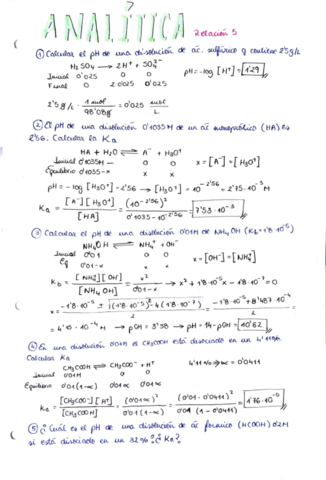 ANALÍTICA
Relación 5
① Calcular el pH de una disolución de ác. sulfúrico q contiene 2'5 g/L
H₂SO₄ → 2H⁺ + SO₄²⁻
Inicial 0'025 0 0
Final 0 2·0'025 0'025
pH = -log [H⁺] = 1'29
2'5 g/L · 1 mol / 98'08 g = 0'025 mol/L
② El pH de una disolución 0'1035 M de un ác monoprótico (HA) es
2'56. Calcular la Ka
HA + H₂O ⇌ A⁻ + H₃O⁺
Inicial 0'1035M – 0 0
Equilibrio 0'1035-x x x
x = [A⁻] = [H₃O⁺]
pH = -log [H₃O⁺] = 2'56 → [H₃O⁺] = 10^-2'56 = 2'75·10⁻³ M
Ka = [A⁻][H₃O⁺] / [HA] = (10^-2'56)² / 0'1035-10^-2'56 = 7'53·10⁻⁵
③ Calcular el pH de una disolución 0'01M de NH₄OH (Kb=1'8·10⁻⁵)
NH₄OH ⇌ NH₄⁺ + OH⁻
Inicial 0'01 0 0
Eq 0'01-x x x
x = [OH⁻] = [NH₄⁺]
Kb = [NH₄⁺][OH⁻] / [NH₄OH] = x² / 0'01-x → x² + 1'8·10⁻⁵x - 1'8·10⁻⁷ = 0
= 4'15·10⁻⁴ M → pOH = 3'38 → pH = 14-pOH = 10'62
④ En una disolución 0'01M el CH₃COOH está disociado en un 4'11%.
Calcular Ka
CH₃COOH ⇌ CH₃COO⁻ + H⁺
4'11% ⇒ α = 0'0411
Inicial 0'01M 0 0
Equilibrio 0'01(1-α) 0'01α 0'01α
Ka = [CH₃COO⁻][H⁺] / [CH₃COOH] = (0'01α)² / 0'01(1-α) = (0'01·0'0411)² / 0'01(1-0'0411) = 1'76·10⁻⁵
⑤ ¿Cuál es el pH de una disolución de ác fórmico (HCOOH)
si está disociado en un 32%? ¿Ka?